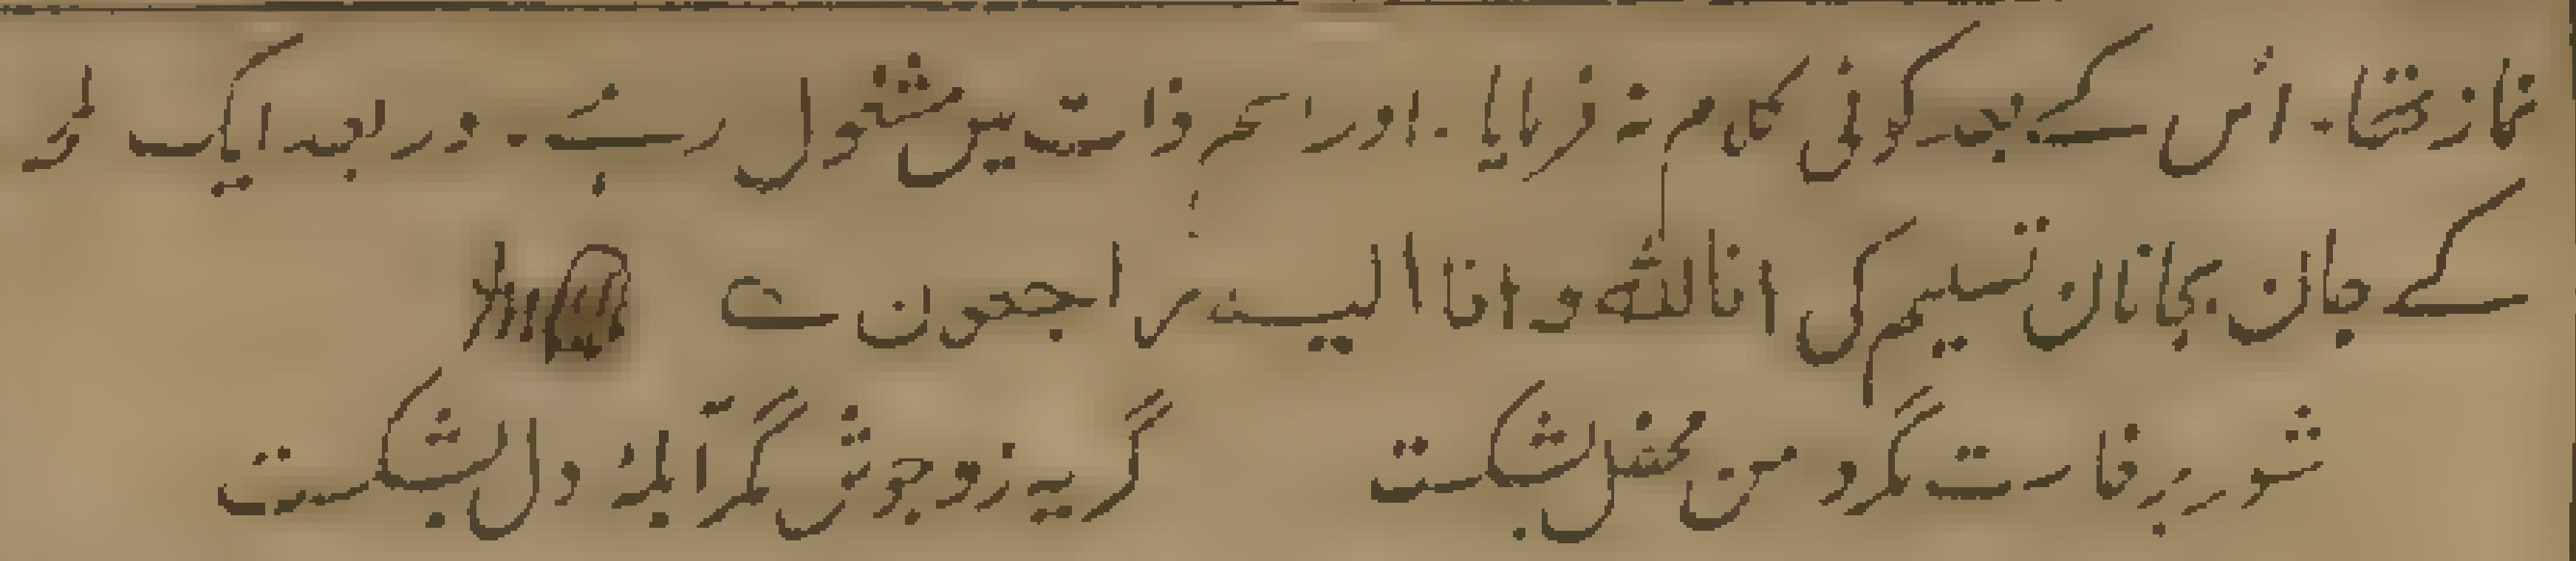 نماز تھا۔ اُس کے بعد کوئی کلام نہ فرمایا۔ اور اسم ذات میں مشغول رہے۔ در بعد ایک لمحہ
کے جان بجانان تسلیم کی انا للہ وانا الیہ راجعون ے
شور برخاست گرد من محفل بشکست گریہ زد جوش مگر آبلۂ دل بشکست